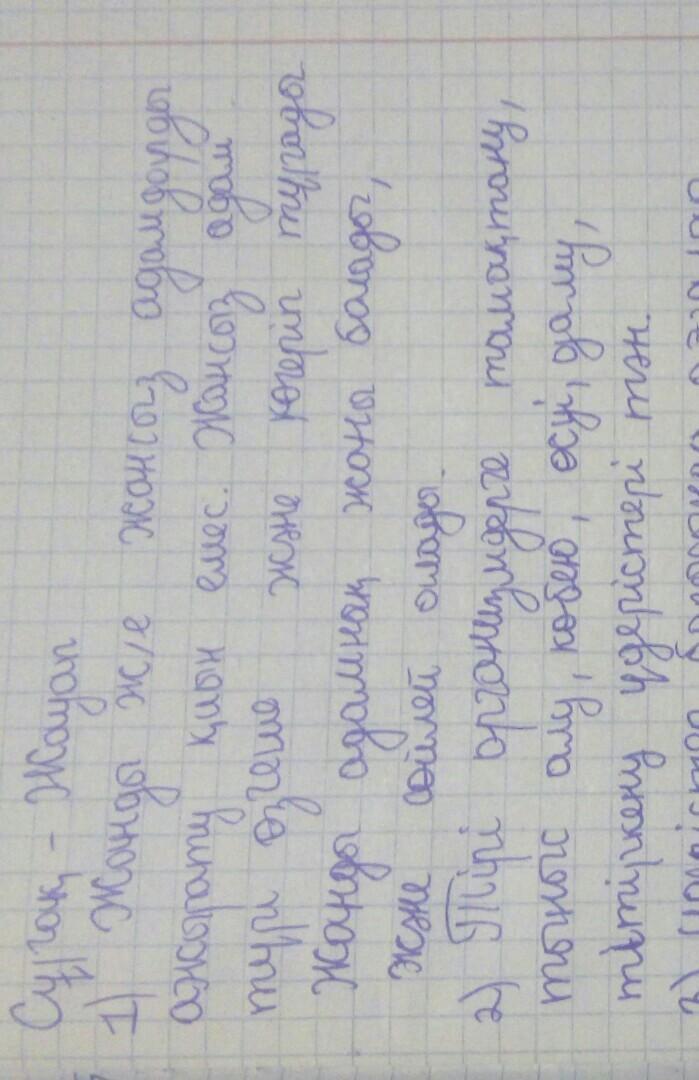 Сұрақ - Жауап
1) Жанды ж/е жансыз адамдарды
ажырату қиын емес. Жансыз адам
түрі өзгеше және көгеріп тұрады
Жанды адамның жаны болады,
және сөйлей алады.
2) Тірі организмдерге тамақтану,
тыныс алу, көбею, өсу, даму,
тітіркену үдерістері тән.
3)